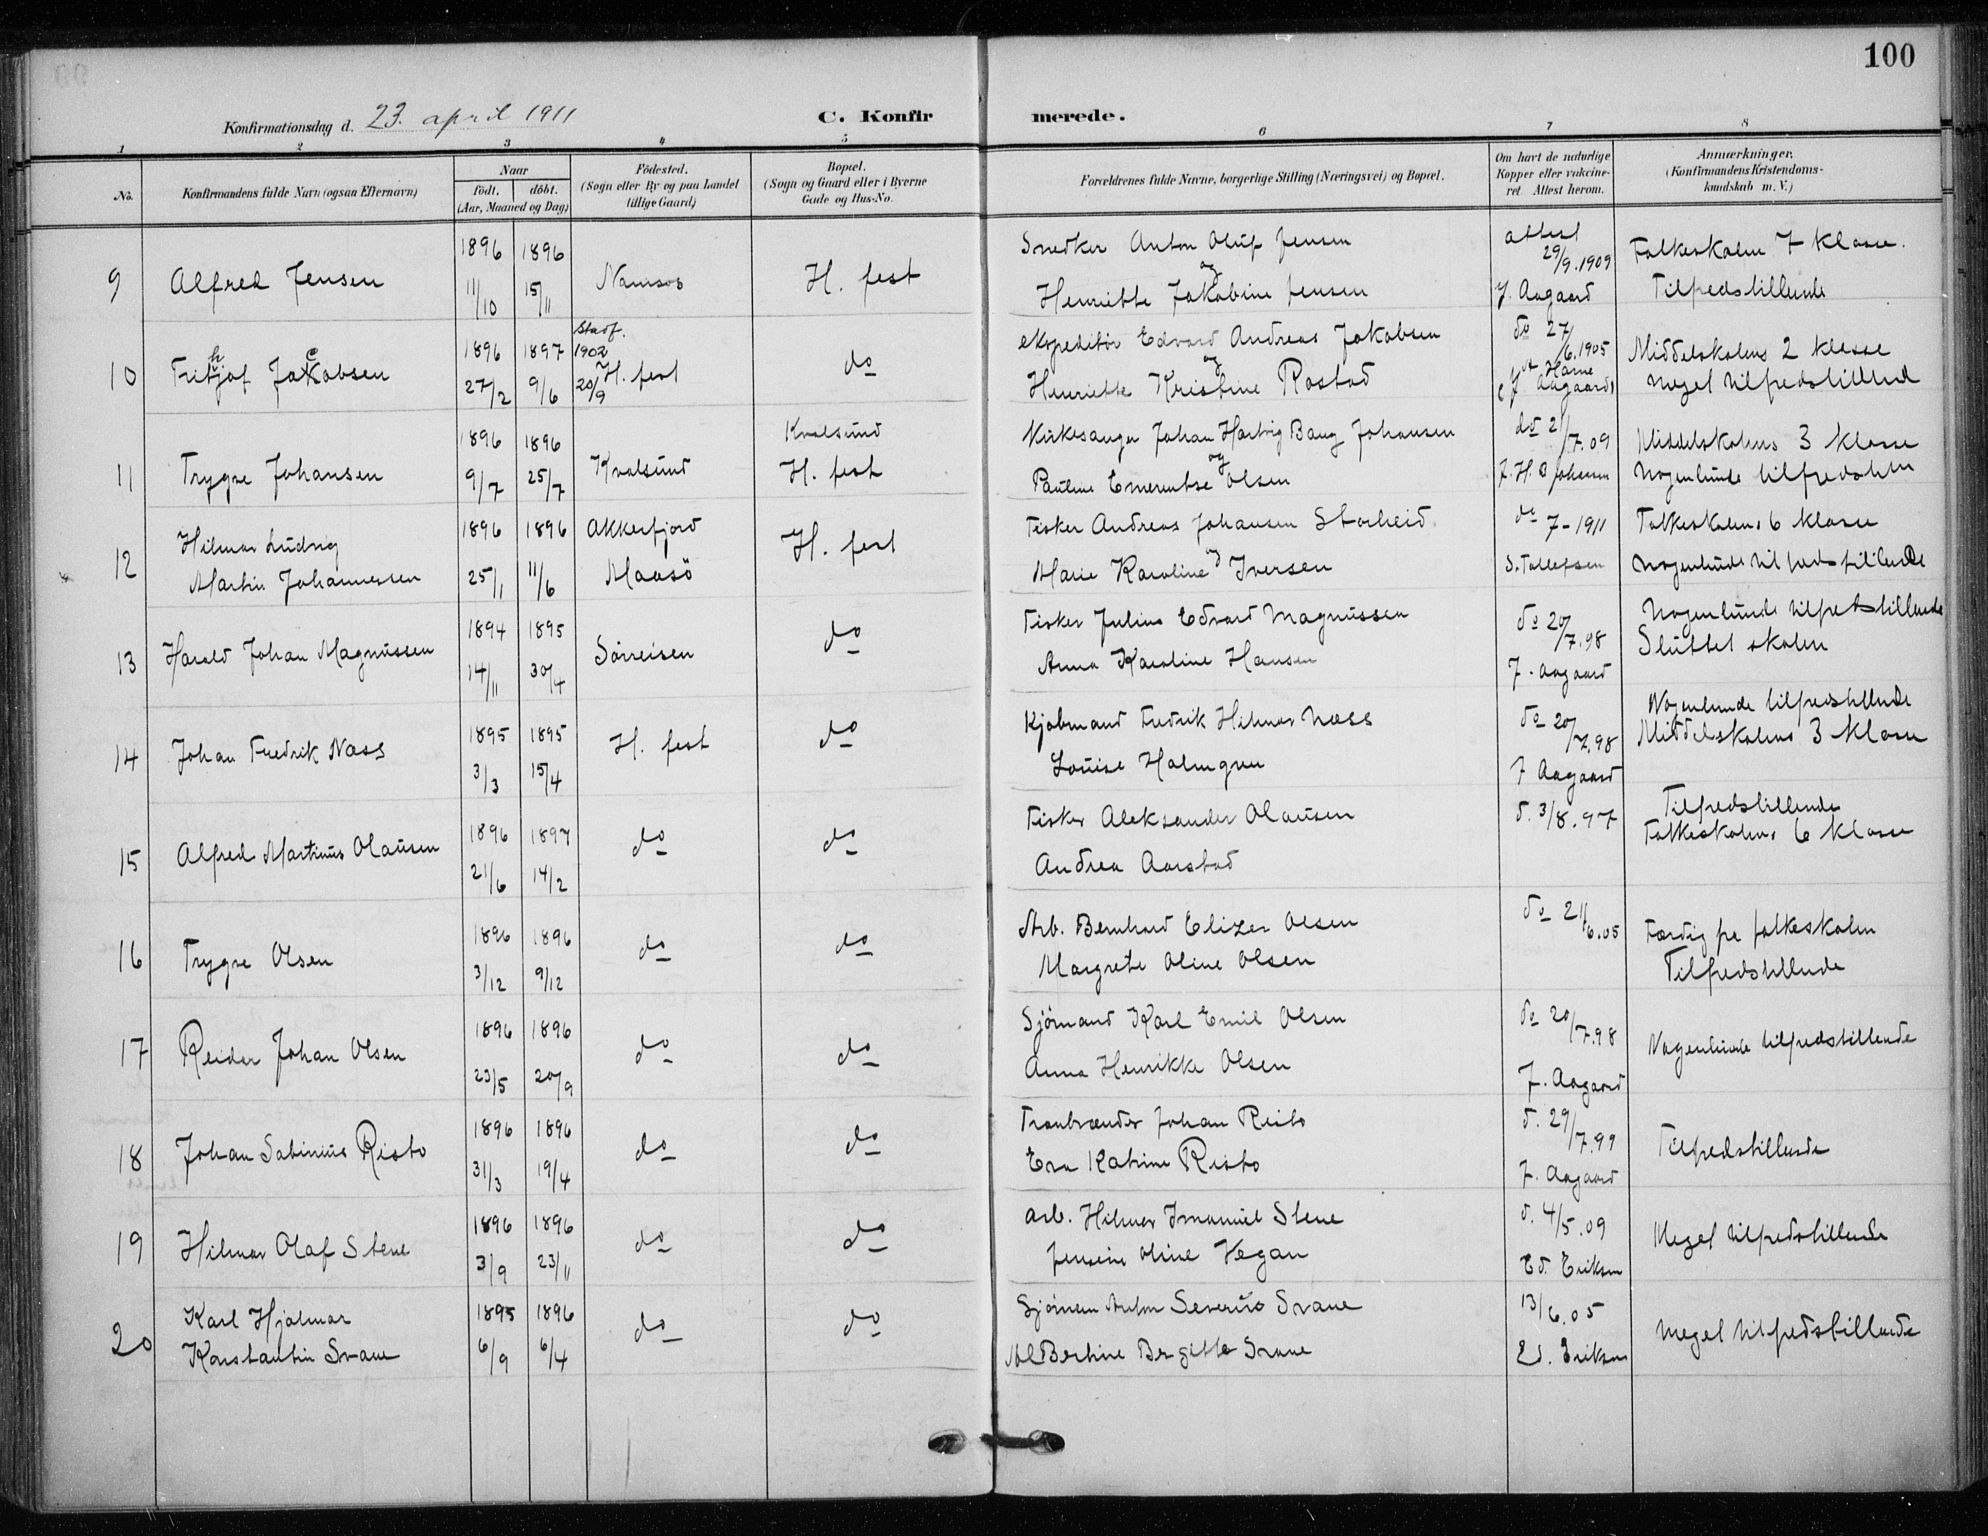 100
Konfirmationsdag d. 23. april 1911
C. Konfirmerede.
1 2 3 4 5 6 7 8
No.
Konfirmandens fulde Navn (ogsaa Efternavn)
Naar
født. døbt.
(Aar, Maaned og Dag)
Fødested.
(Sogn eller By og paa Landet
tillige Gaard)
Bopæl.
(Sogn og Gaard eller i Byerne
Gade og Hus-No.
Forældrenes fulde Navne, borgerlige Stilling (Næringsvei) og Bopæl.
Om havt de naturlige
Kopper eller vakcine-
ret. Attest herom.
Anmærkninger.
(Konfirmandens Kristendoms-
kundskab m. V.)
9 Alfred Jensen
1896 11/10
1896 15/11
Namsos
H. fest
Snedker Anton Oluf Jensen
og
Henriette Jakobine Jensen
attest
29/9.1909
J. Aagaard
Folkeskolen 7 klasse.
Tilfredstillende
10 Frithjof Jacobsen
1896 27/2
1897 9/6
Stadf.
1902
20/9
H. fest
do
ekspeditør Edvard Andreas Jakobsen
og
Henriette Kristine Rostad
do 27/6.1905
J. Aagaard
Middelskolens 2 klasse
Meget tilfredstillend
11 Trygve Johansen
1896 9/7
1896 25/7
Kvalsund
Kvalsund
H. fest
Kirkesanger Johan Hartvig Baug Johansen
og
Pauline Emerentse Olsen
do 21/7.09
J. H. B Johansen
Middelskolens 3 klasse
Nogenlunde tilfredstill
12 Hilmar Ludvig
Martin Johannessen
1896 25/1
1896 11/6
Akkerfjord
Maasö
H. fest
Fisker Andreas Johansen Storheid.
og
Marie Karoline Iversen
do 7-1911
S. Tollefsen
Folkeskolens 6 klasse
Nogenlunde tilfredstillende
13 Harald Johan Magnussen
1894 14/11
1895 30/4
Sörreisen
do
Fisker Julius Edvard Magnussen
Anna Karoline Hansen
do 20/7.98
J. Aagaard
Nogenlunde tilfredstillende
Sluttet skolen
14 Johan Fredrik Næss
1895 3/3
1895 15/4
H. fest
do
Kjøbmand Fredrik Hilmar Næss
Louise Holmgren
do 20/7.98
J Aagaard
Nogenlunde tilfredstillende
Middelskolens 3 klasse
15 Alfred Martinus Olausen
1896 21/6
1897 14/2
do
do
Fisker Aleksander Olausen
Andrea Aarstad
d. 3/8.97
Tilfredstillende
Folkeskolens 6 klasse
16 Trygve Olsen
1896 3/12
1896 9/12
do
do
Arb. Bernhard Elizer Olsen
Margrete Oline Olsen
do 21/6.05
Færdig fra folkeskolen
Tilfredstillende
17 Reidar Johan Olsen
1896 23/5
1896 20/9
do
do
Sjømand Karl Emil Olsen
Anna Henrikke Olsen
do 20/7.98
J. Aagaard
Nogenlunde tilfredstillende
18 Johan Sabinius Risto
1896 31/3
1896 19/4
do
do
Tranbrænder Johan Risto
Eva Katrine Risto
d. 29/7.99
J. Aagaard
Tilfredstillende
19 Hilmar Olaf Stene
1896 3/9
1896 23/11
do
do
Arb. Hilmar Imanuel Stene
Jensine Oline Vegan
d. 4/5.09
Ed. Eriksen
Meget tilfredstillende
20 Karl Hjalmar
Konstantin Svane
1895 6/9
1896 6/4
do
do
Sjøman Anton Severius Svane
Albertine Bergitte Svane
13/6.05
Ed. Eriksen
Meget tilfredstillende